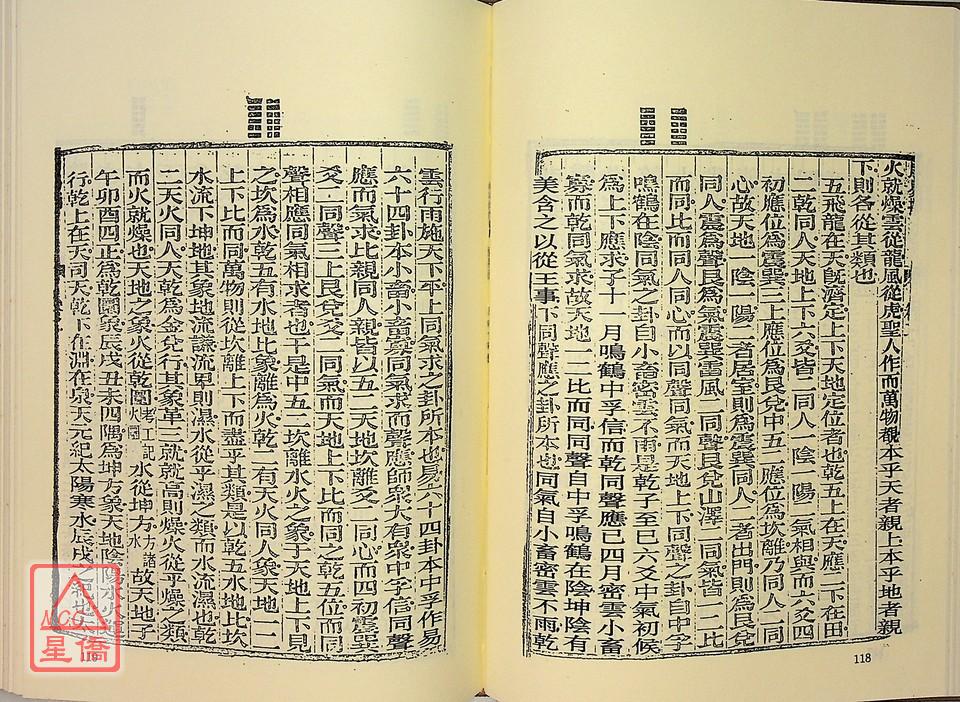 火就燥雲從龍風從虎聖人作而萬物覩本乎天者親上本乎地者親
下則各從其類也
五飛龍在天旣濟定上下天地定位者也乾五上在天應二下在田
二乾同人天地上下六爻皆二同人一陰一陽二氣相與而六爻四
初應位爲震巽三上應位爲艮兌中五二應位爲坎離乃同人二同
心故天地一陰一陽二者居室則爲震巽同人二者出門則爲艮兌
同人震爲聲艮爲氣震巽雷風二同聲艮兌山澤二同氣皆一二比
而同比而同人同心而以同聲同氣而天地上下同聲之卦自中孚
鳴鶴在陰同氣之卦自小畜密雲不雨是乾子至巳六爻中氣初候
爲上下應求子十一月鳴鶴中孚信而乾同聲應巳四月密雲小畜
寡而乾同氣求故天地一二比而同同聲自中孚鳴鶴在陰坤陰有
美含之以從王事下同聲應之卦所本也同氣自小畜密雲不雨乾
雲行雨施天下平上同氣求之卦所本也易六十四卦本中孚作易
六十四卦本小畜小畜寡同氣求而聲應師衆大有衆中孚信同聲
應而氣求比親同人親皆以五二天地坎離爻二同心而四初震巽
爻二同聲三上艮兌爻二同氣而天地上下比而同之乾五位而同
聲相應同氣相求者也于是中五二坎離水火之象于天地上下見
之坎爲水乾五有水地比象離爲火乾二有天火同人象天地一二
上下比而同萬物則從坎離上下而盡乎其類是以乾五水地比坎
水流下坤地其象地流謙流卑則濕水從乎濕之類而水流濕也乾
二天火同人大乾爲金兌行其象革三就就高則燥火從乎燥之類
而火就燥也天地之象火從乾圜考工記火圜水從坤方方諸水故天地子
午卯酉四正爲乾圜象辰戌丑未四隅爲坤方象天地陰陽水火
行乾上在天司天乾下在淵在泉天元紀太陽寒水辰戌之紀也
118
119
NCC
星僑